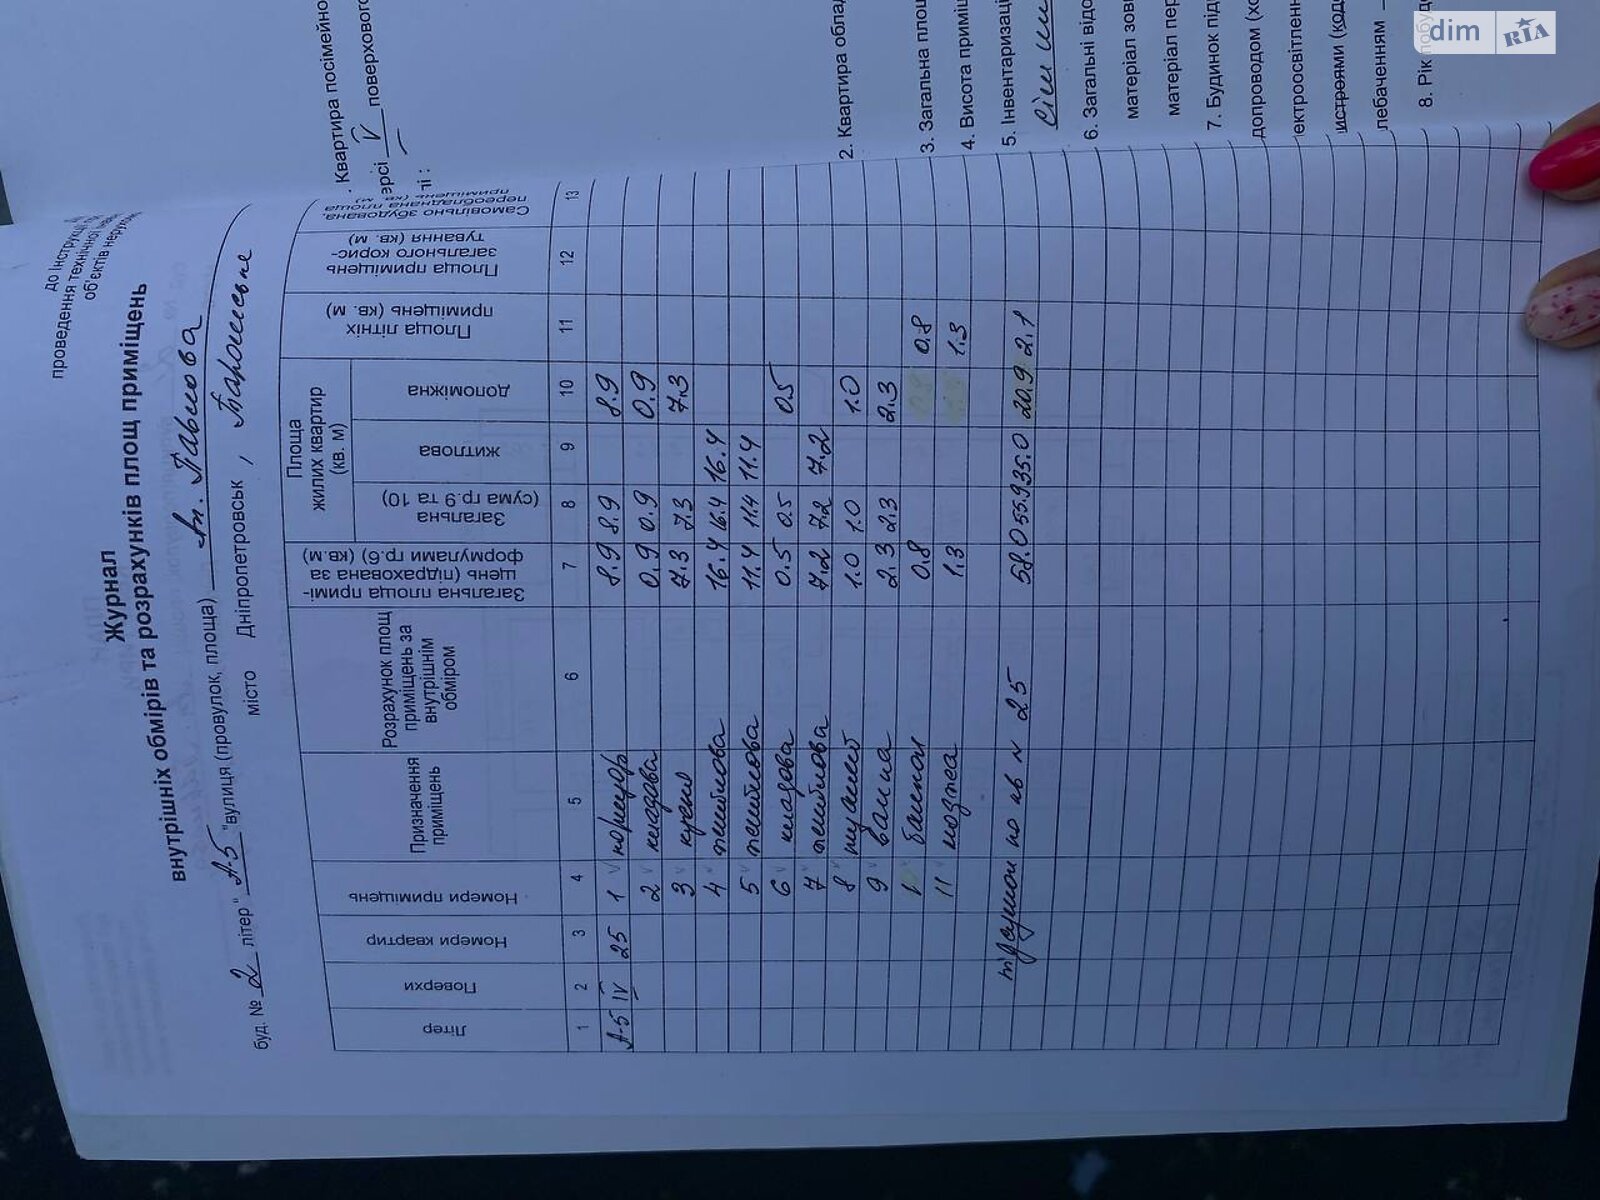 до Інструкції
проведення технічної
об'єктів
Журнал
внутрішніх обмірів та розрахунків площ приміщень
буд. № 2 літер " А-5 "вулиця (провулок, площа)
місто Дніпропетровськ ,
Літер
Поверхи
Номери квартир
Номери приміщень
Призначення приміщень
Розрахунок площ приміщень за внутрішнім обміром
Загальна площа приміщень (підрахована за формулами гр.6) (кв.м)
Площа жилих квартир (кв. м)
Загальна (сума гр.9 та 10)
житлова
допоміжна
Площа літніх приміщень (кв. м)
Площа приміщень загального користування (кв. м)
Самовільно збудована, переобладнана площа приміщень (кв. м)
1 2 3 4 5 6 7 8 9 10 11 12 13
А-5 IV 25 1 коридор 8.9 8.9 8.9
2 кладова 0.9 0.9 0.9
3 кухня 7.3 7.3 7.3
4 житлова 16.4 16.4 16.4
5 житлова 11.4 11.4 11.4
6 кладова 0.5 0.5 0.5
7 житлова 7.2 7.2 7.2
8 туалет 1.0 1.0 1.0
9 ванна 2.3 2.3 2.3
балкон 0.8 0.8
11 лоджа 1.3 1.3
по кв N 25 58.0 55.9 35.0 20.9 2.1
Квартира посімейно
V поверхового
2. Квартира
3. Загальна
4. Висота
5.
6. Загальні
матеріал
матеріал
7. Будинок
8. Рік
dim RIA